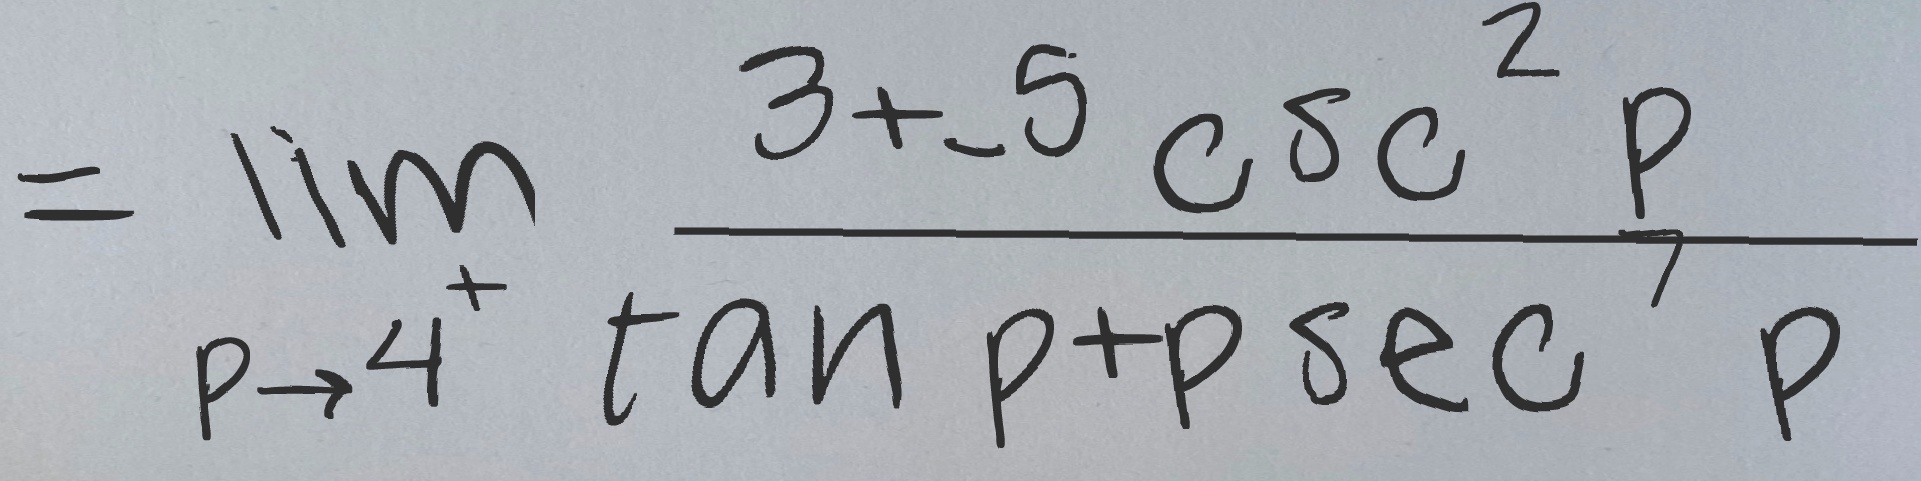 = \lim_{p \to 4^+} \frac{3 + -5 \csc^2 p}{\tan p + p \sec^7 p}